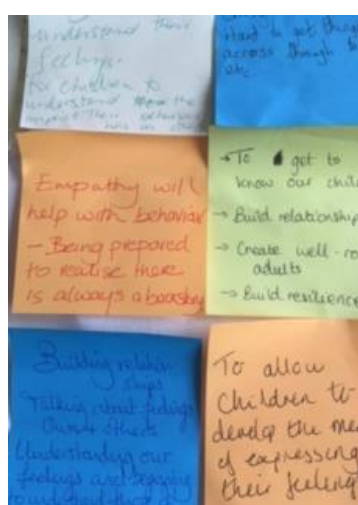 understand their
feelings.
for children to
understand the
impact their behaviour
has on others
hard to get things
access through to
etc.
Empathy will
help with behavior
- Being prepared
to realise there
is always a backstory
→ To get to
know our chil
→ Build relationship
→ Create well-ro
adults
→ Build resilience
Building relation
ships
Talking about feelings
Own & others
Understanding our
feelings and learning
to understand those of
To allow
Children to
develop the me
of expressing
their feeling